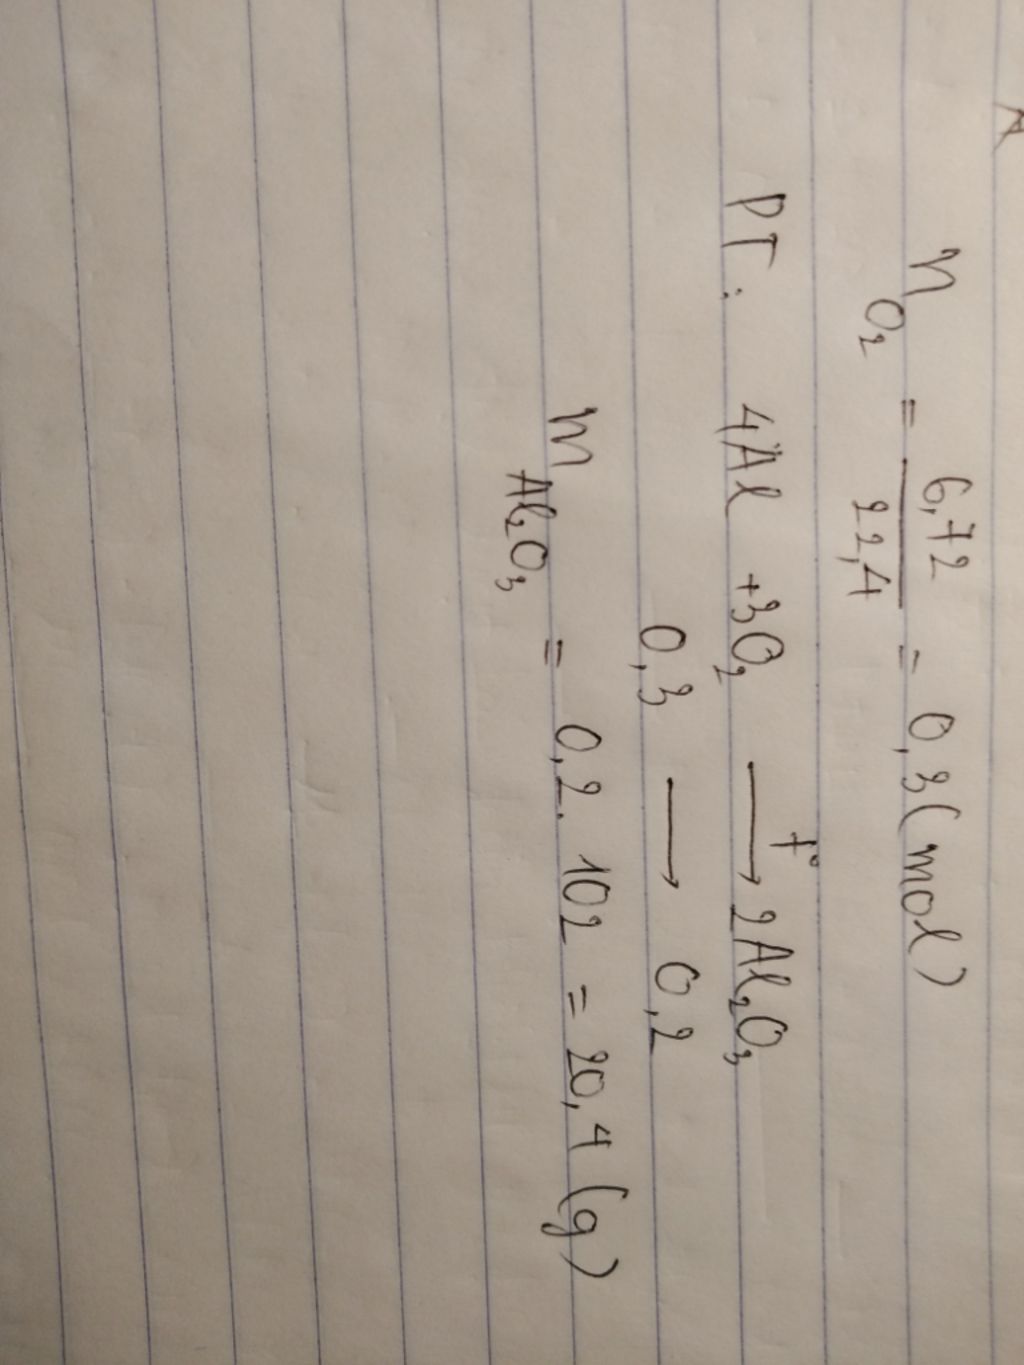 n O₂ = 6,72 / 22,4 = 0,3 (mol)
PT: 4Al + 3O₂ —t°→ 2Al₂O₃
0,3 → 0,2
m Al₂O₃ = 0,2. 102 = 20,4 (g)